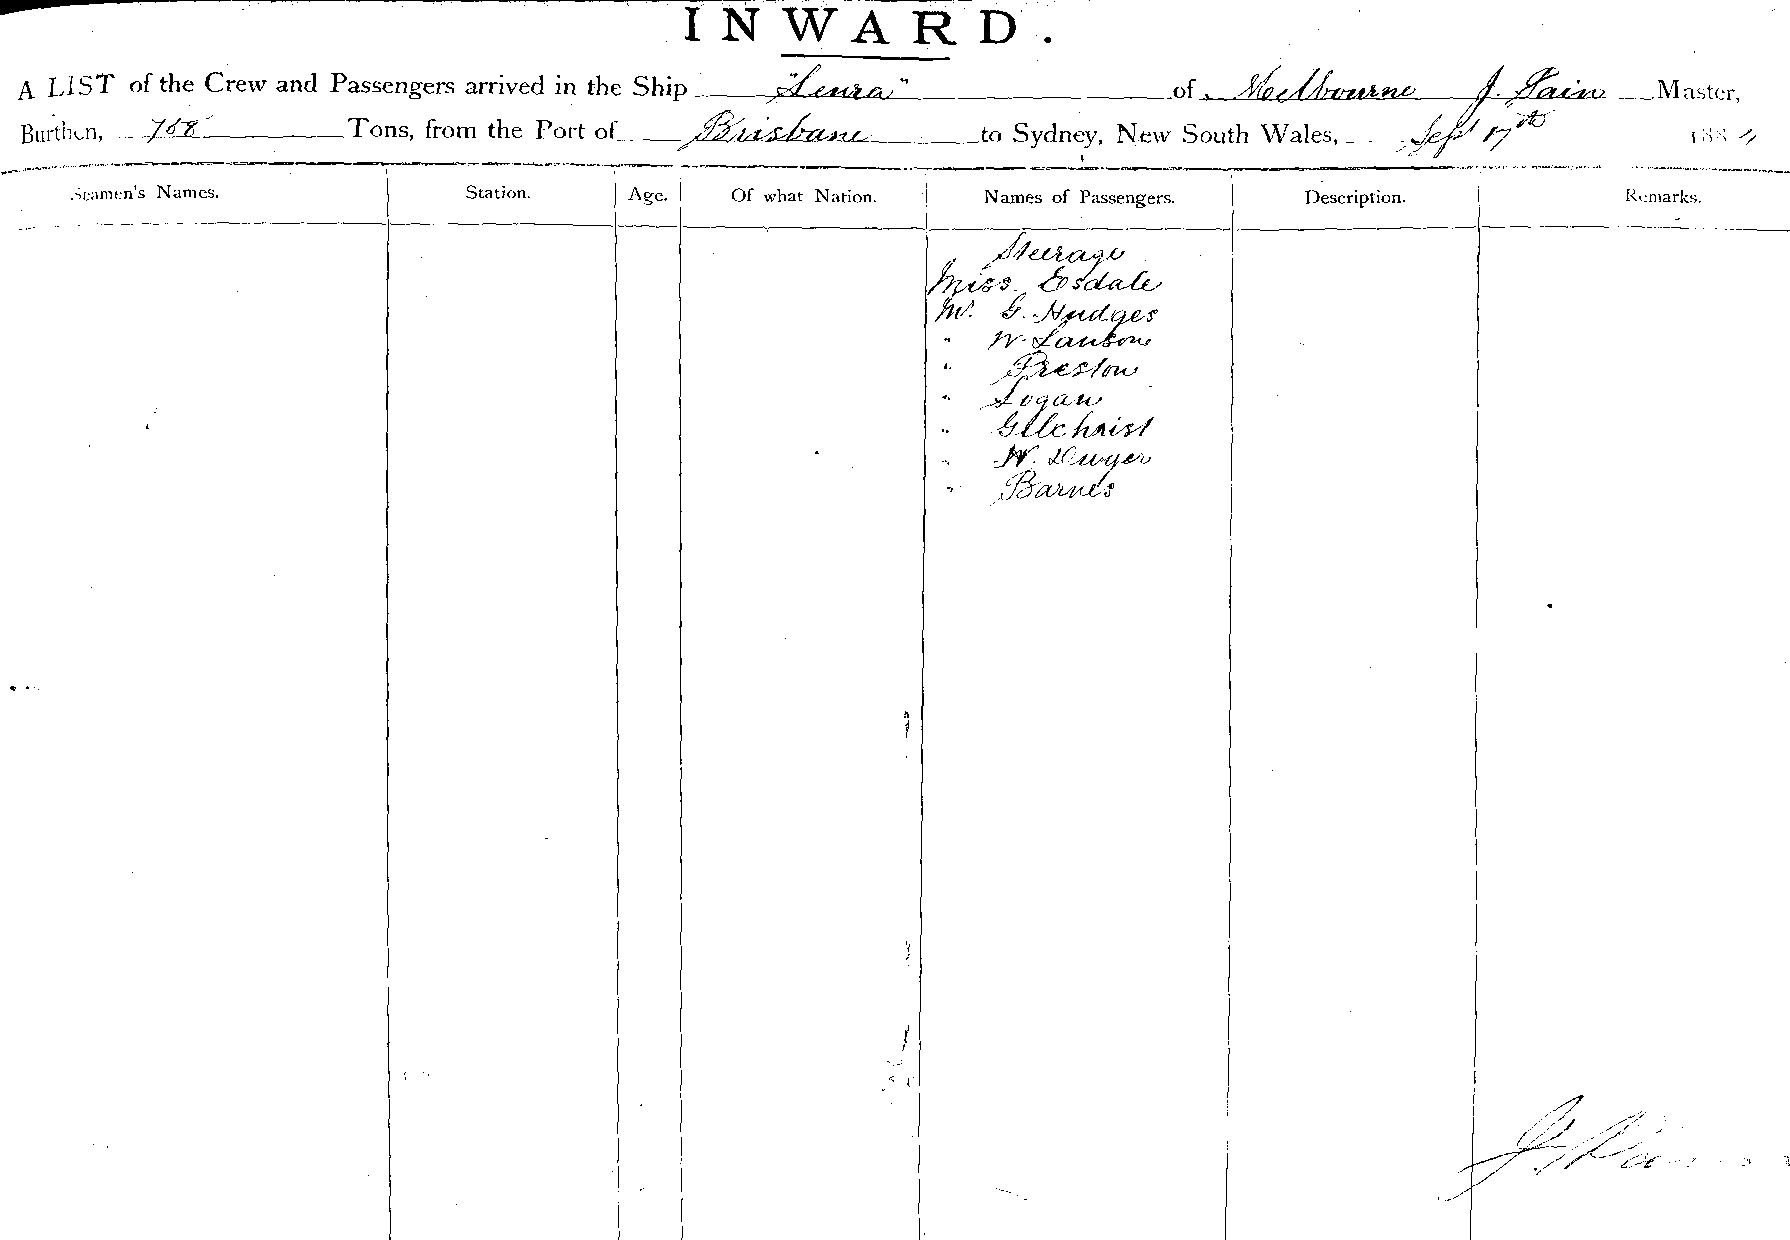 INWARD.
A LIST of the Crew and Passengers arrived in the Ship of Melbourne J. Master,
Burthen, Tons, from the Port of Brisbane to Sydney, New South Wales, Sept 17th 188
Seamen's Names. Station. Age. Of what Nation. Names of Passengers. Description. Remarks.
Steerage
Miss Esdale
Mr. G. Hudges
" W.
" Preston
" Logan
" Gilchrist
" W. Dwyer
" Barnes